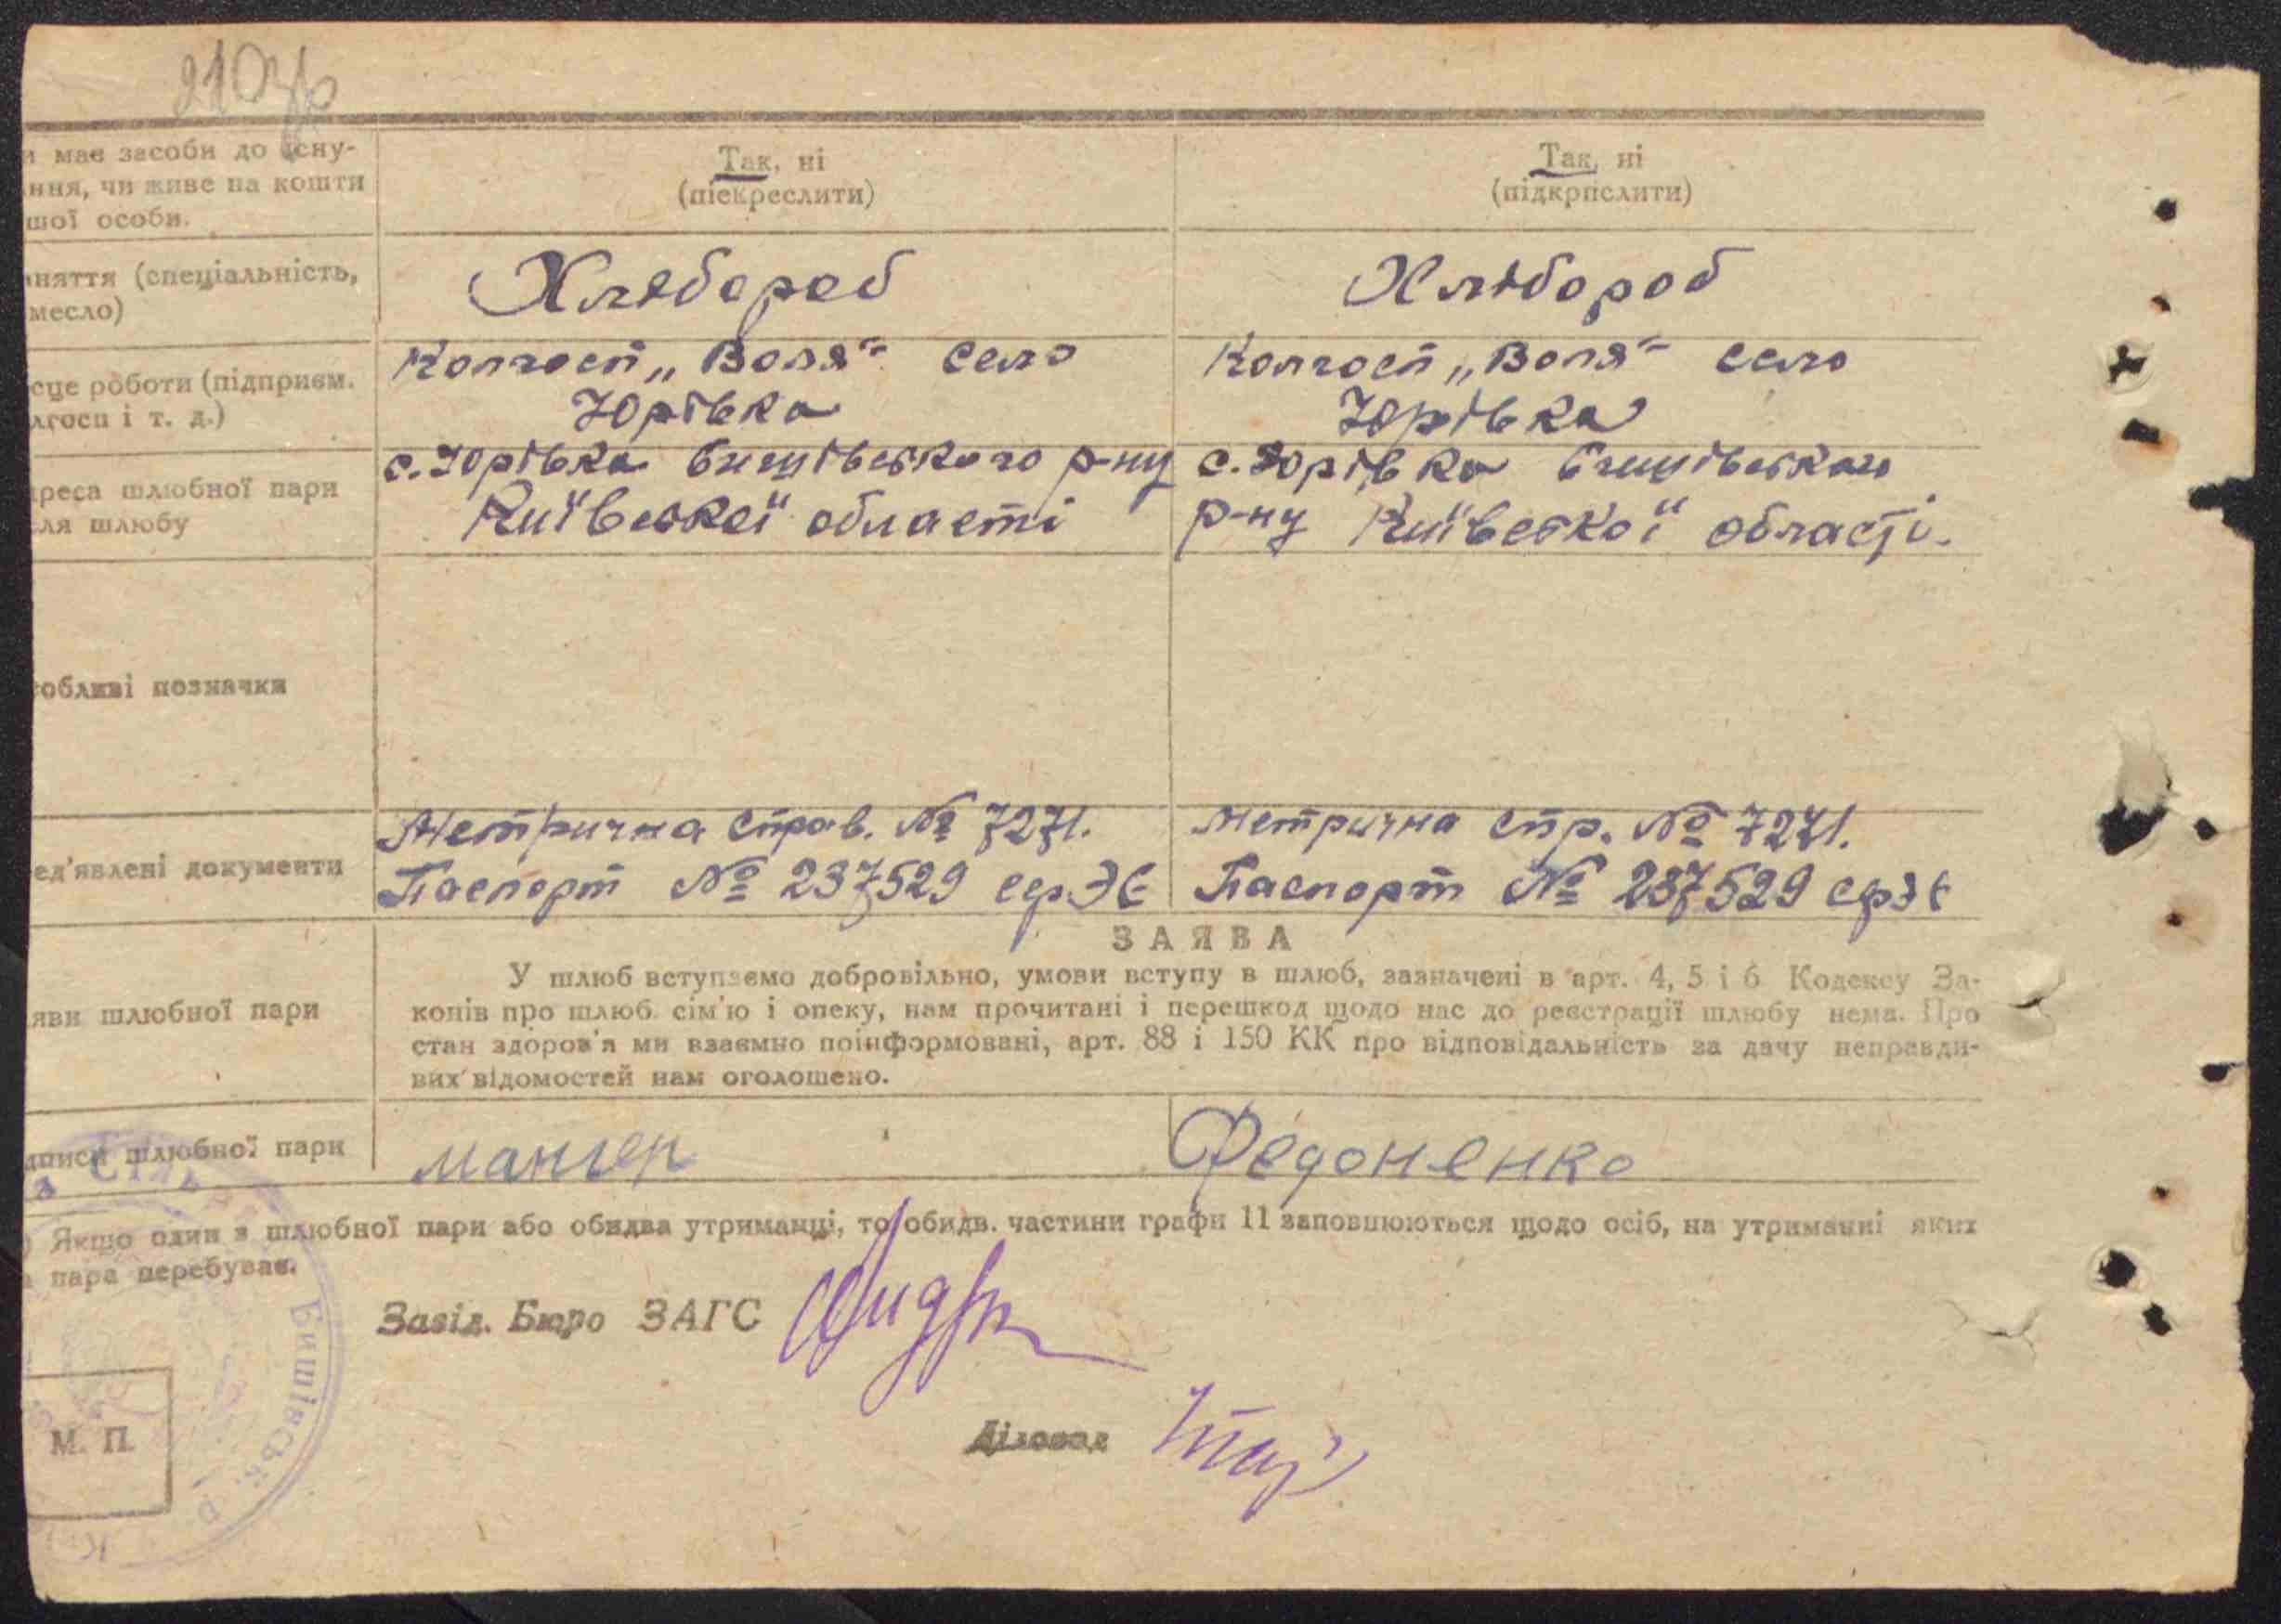 и має засоби до існу-
ння, чи живе на кошти
шої особи.
Так, ні
(піскреслити)
Так, ні
(підкрпслити)
няття (спеціальність,
месло)
Хлібороб
Хлібороб
сце роботи (підприєм.
лгосп і т. д.)
Колгосп „Воля“ село
Юрівка
Колгосп „Воля“ село
Юрівка
реса шлюбної пари
ля шлюбу
с. Юрівка Бишівського р-ну
Київської області
с. Юрівка Бишівського
р-ну Київської області.
обливі позначки
ед'явлені документи
Метрична справ. № 7271.
Паспорт № 237529 сер ЭЄ
Метрична спр. № 7271.
Паспорт № 237529 ср ЭЄ
яви шлюбної пари
ЗАЯВА
У шлюб вступаємо добровільно, умови вступу в шлюб, зазначені в арт. 4, 5 і 6 Кодексу За-
конів про шлюб сім'ю і опеку, нам прочитані і перешкод щодо нас до реєстрації шлюбу нема. Про
стан здоров'я ми взаємно поінформовані, арт. 88 і 150 КК про відповідальність за дачу неправди-
вих відомостей нам оголошено.
дписи шлюбної пари
Федоненко
) Якщо один з шлюбної пари або обидва утриманці, то обидв. частини графи 11 заповнюються щодо осіб, на утриманні яких
пара перебуває.
Завід. Бюро ЗАГС
Діловод
М. П.
Бишівськ. Р